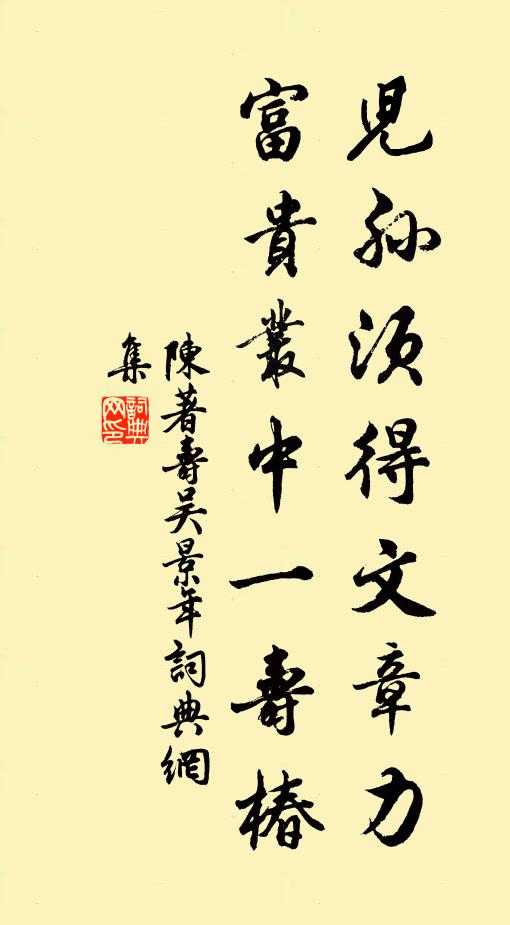 兒孫須得文章力
富貴叢中一壽椿
陳著壽吴景年詞典網
集
詞典
网印